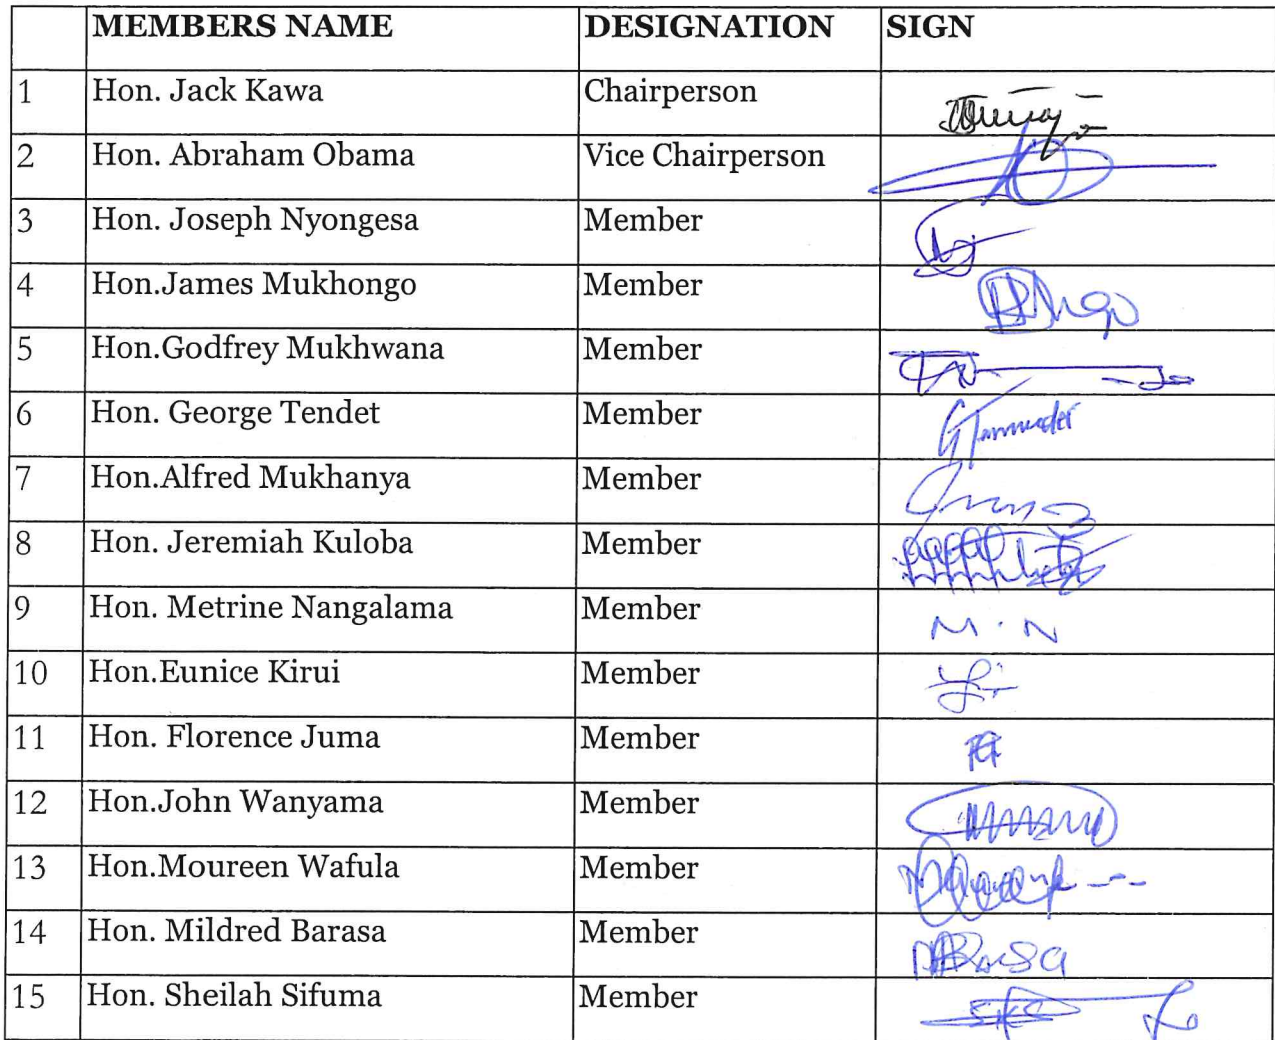 MEMBERS NAME DESIGNATION SIGN
1 Hon. Jack Kawa Chairperson
2 Hon. Abraham Obama Vice Chairperson
3 Hon. Joseph Nyongesa Member
4 Hon.James Mukhongo Member
5 Hon.Godfrey Mukhwana Member
6 Hon. George Tendet Member
7 Hon.Alfred Mukhanya Member
8 Hon. Jeremiah Kuloba Member
9 Hon. Metrine Nangalama Member M. N
10 Hon.Eunice Kirui Member
11 Hon. Florence Juma Member
12 Hon.John Wanyama Member
13 Hon.Moureen Wafula Member
14 Hon. Mildred Barasa Member
15 Hon. Sheilah Sifuma Member